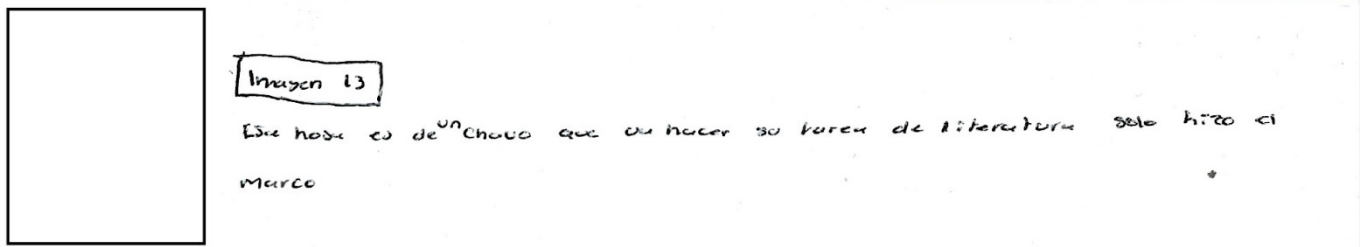 Imagen 13
Ese hoja es de un chavo que va hacer su tarea de literatura solo hizo el
marco